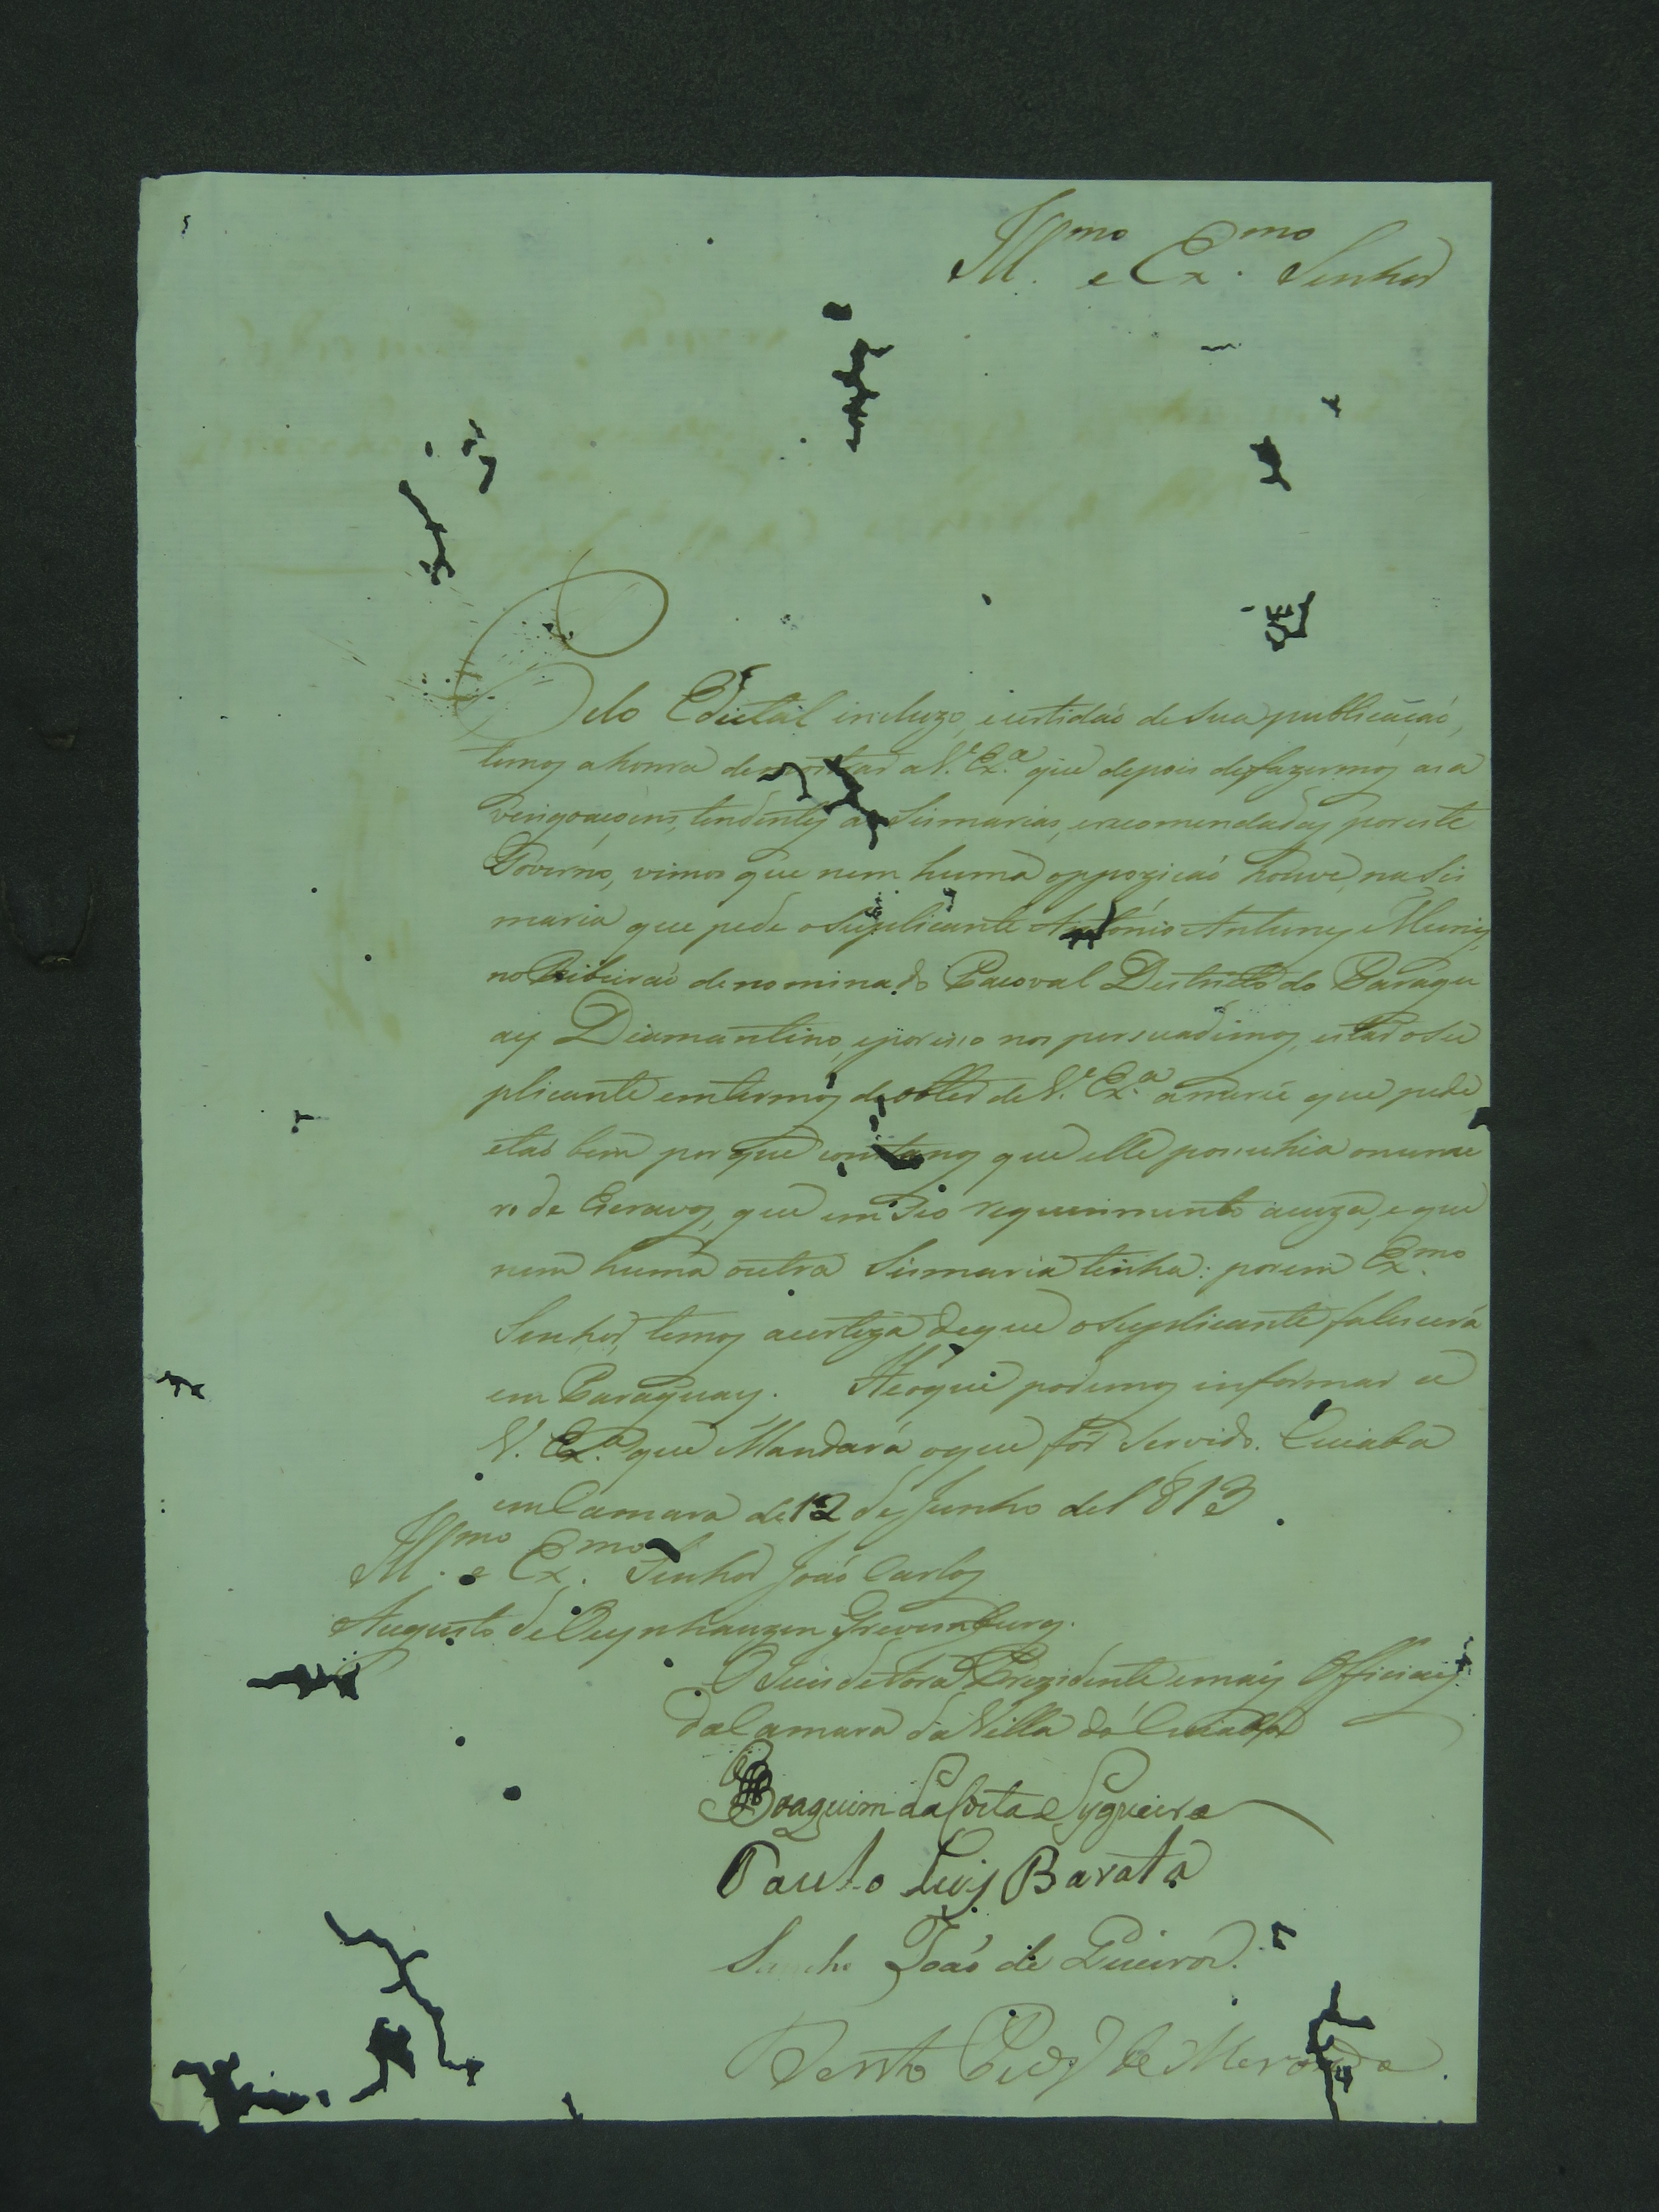 Ill.mo e Ex.mo Senhor
Pelo Edictal incluzo, e certidaõ de sua publicaçaõ,
temos a honra de mostrar a V.ª Ex.ª que depois de fazermos as a
verigoaçoens, tendentes a Sismarias, encomendadas por este
Governo, vimos que nem huma oppoziçaõ houve, na Sis
maria que pede o Suplicante António Antunes Muniz,
no Ribeiraõ denominado Pacoval Destricto do Paragu
ay Diamantino, e por isso nos persuadimos, estar o Su
plicante em termos de obter de V.ª Ex.ª a mercê que pede,
e taõ bem porque constanos que elle possuhia o nume
ro de Escravos, que em seo requerimento acuza, e que
nem huma outra Sismaria tinha: porem Ex.mo
Senhor, temos a certeza de que o Suplicante falescerá
em Paraguay. He o que podemos informar a
V. Ex.ª que Mandará o que fôr Servido. Cuiaba
em Camara de 12 de Junho de 1813.
Ill.mo e Ex.mo Senhor Joaõ Carlos
Augusto de Oeynhauzen Grevemburg.
O Juis de fora Prezidente e mais Officiaes
da Camara da Villa do Cuiabá
Joaquim da Costa e Syqueira
Paulo Luis Barata
Sancho Joaõ de Queirós.
Bento de